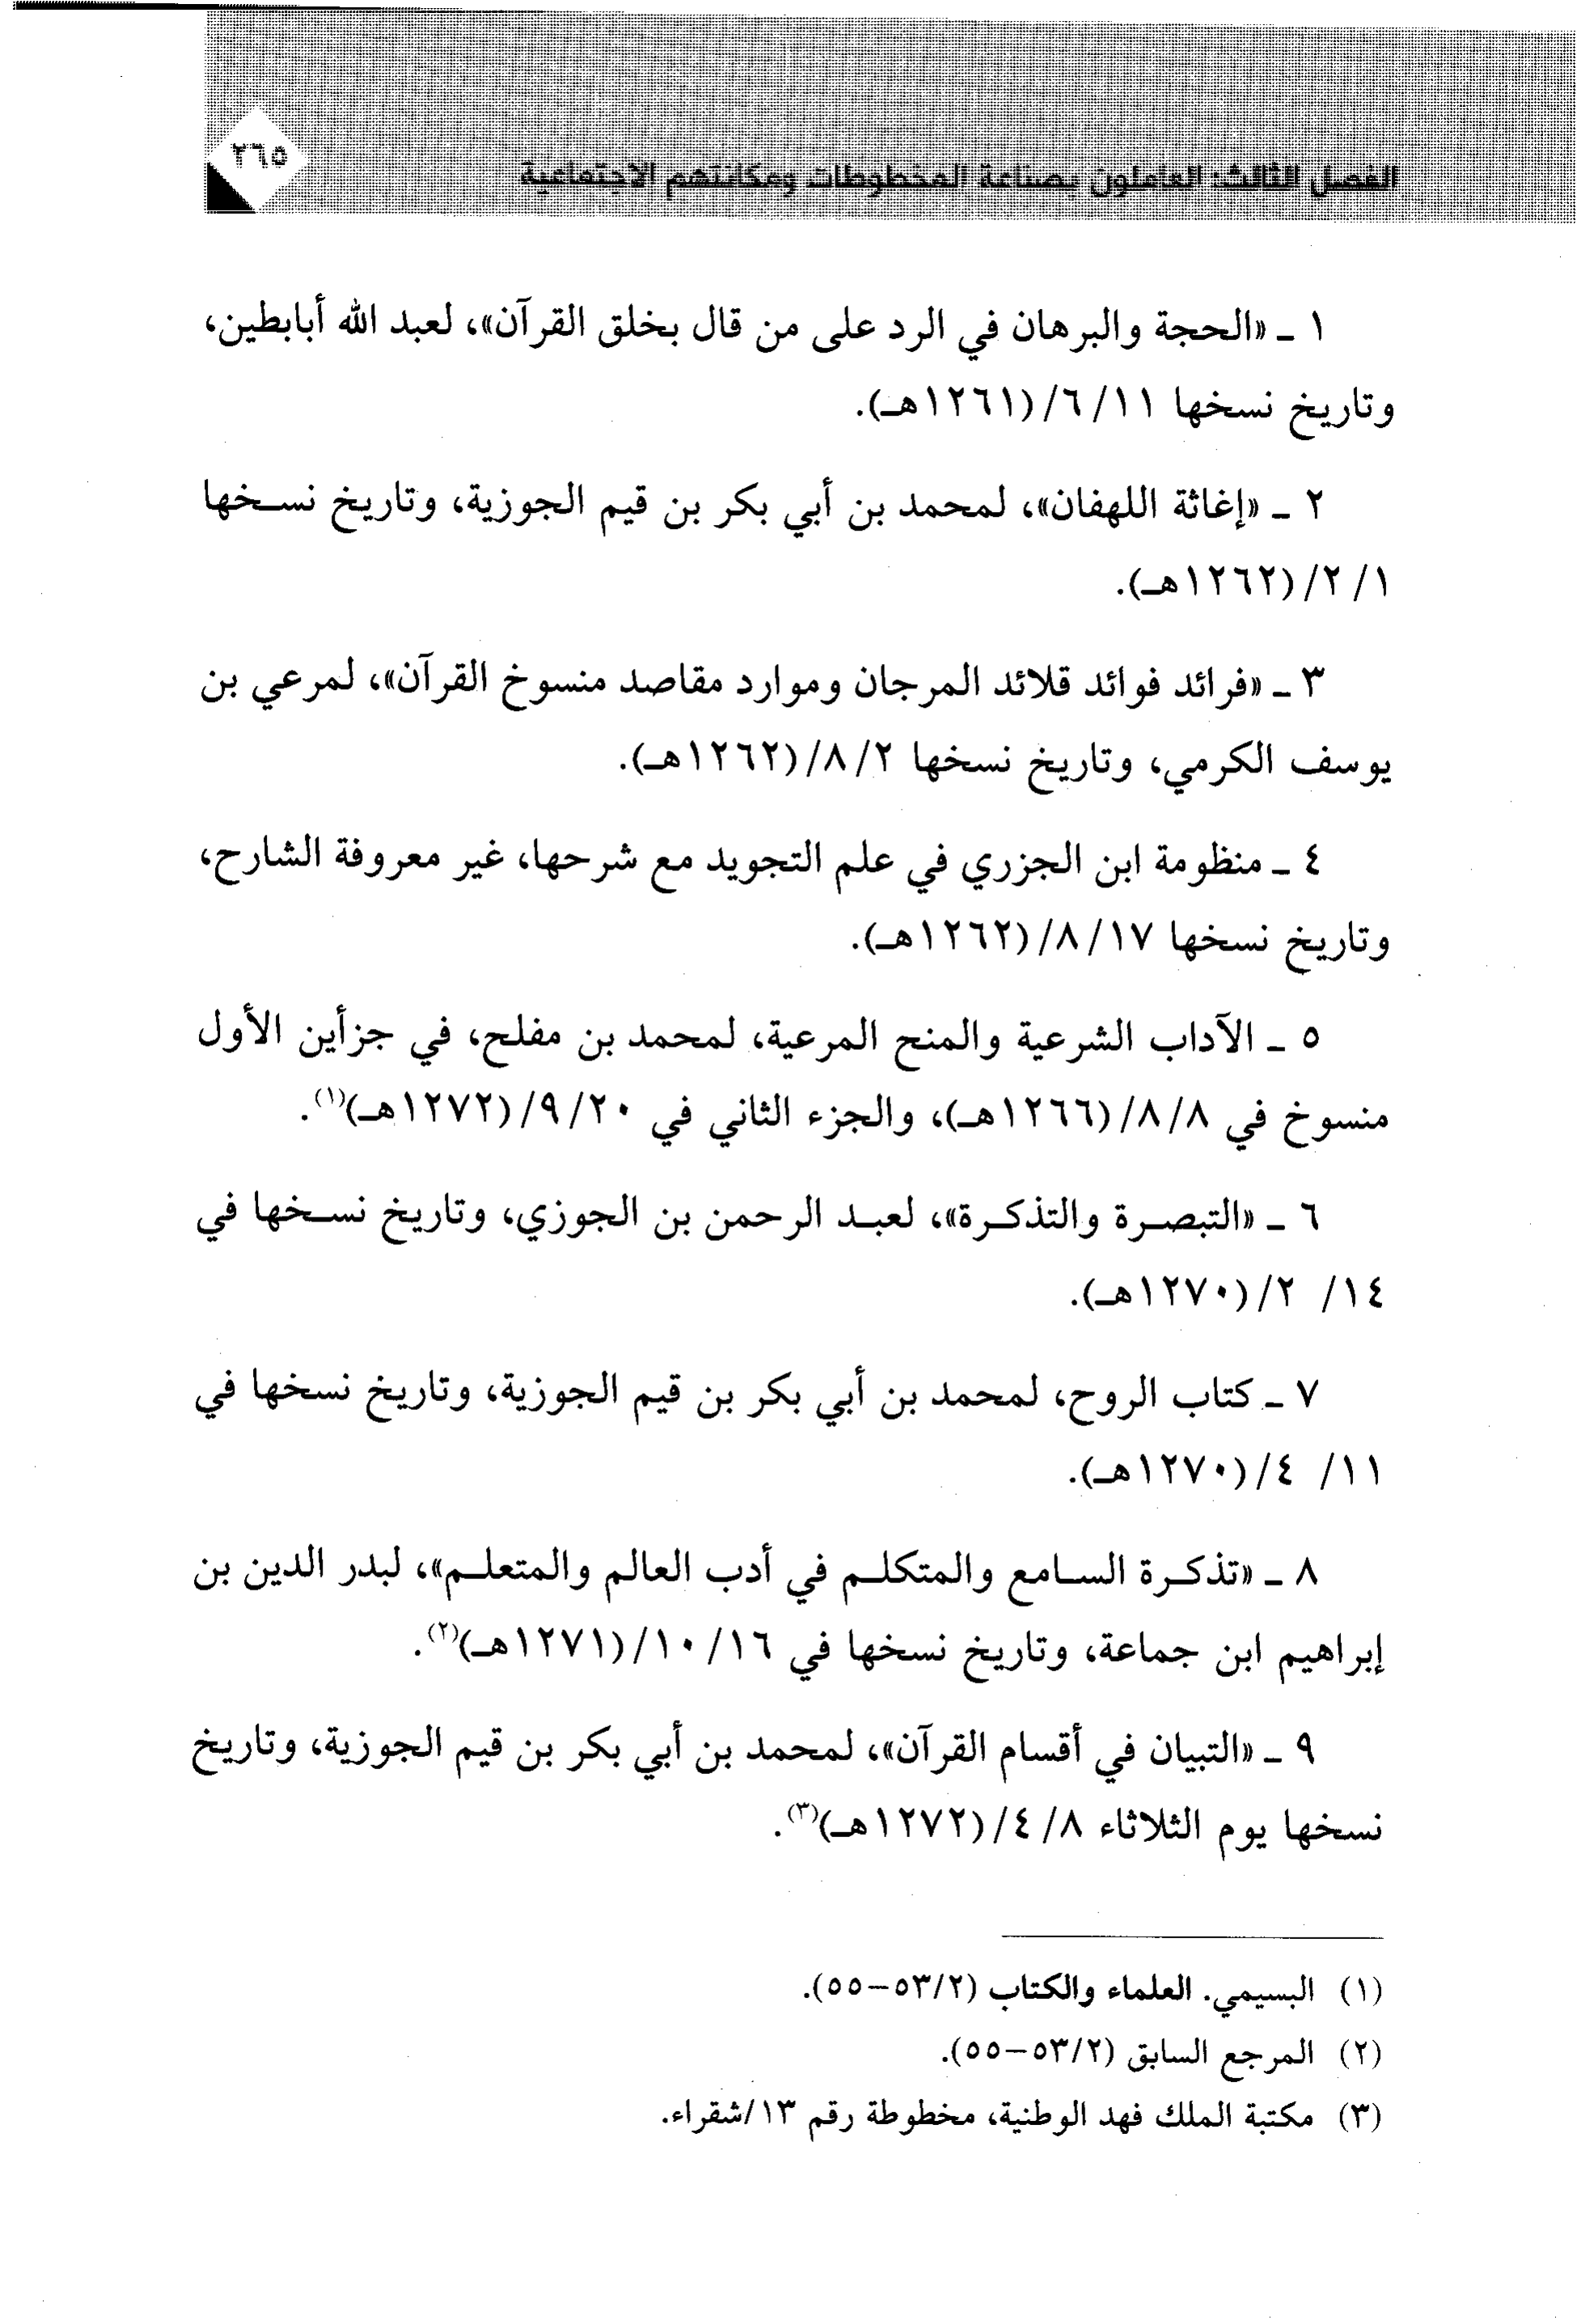 ٢٦٥
الفصل الثالث: العاملون بصناعة المخطوطات ومكانتهم الاجتماعية
١ ـ «الحجة والبرهان في الرد على من قال بخلق القرآن»، لعبد الله أبابطين،
وتاريخ نسخها ١١/ ٦/ (١٢٦١هـ).
٢ ـ «إغاثة اللهفان»، لمحمد بن أبي بكر بن قيم الجوزية، وتاريخ نسخها
١/ ٢/ (١٢٦٢هـ).
٣ ـ «فرائد فوائد قلائد المرجان وموارد مقاصد منسوخ القرآن»، لمرعي بن
يوسف الكرمي، وتاريخ نسخها ٢/ ٨/ (١٢٦٢هـ).
٤ ـ منظومة ابن الجزري في علم التجويد مع شرحها، غير معروفة الشارح،
وتاريخ نسخها ١٧/ ٨/ (١٢٦٢هـ).
٥ ـ الآداب الشرعية والمنح المرعية، لمحمد بن مفلح، في جزأين الأول
منسوخ في ٨/ ٨/ (١٢٦٦هـ)، والجزء الثاني في ٢٠/ ٩/ (١٢٧٢هـ)(١).
٦ ـ «التبصرة والتذكرة»، لعبد الرحمن بن الجوزي، وتاريخ نسخها في
١٤/ ٢/ (١٢٧٠هـ).
٧ ـ كتاب الروح، لمحمد بن أبي بكر بن قيم الجوزية، وتاريخ نسخها في
١١/ ٤/ (١٢٧٠هـ).
٨ ـ «تذكرة السامع والمتكلم في أدب العالم والمتعلم»، لبدر الدين بن
إبراهيم ابن جماعة، وتاريخ نسخها في ١٦/ ١٠/ (١٢٧١هـ)(٢).
٩ ـ «التبيان في أقسام القرآن»، لمحمد بن أبي بكر بن قيم الجوزية، وتاريخ
نسخها يوم الثلاثاء ٨/ ٤/ (١٢٧٢هـ)(٣).
(١) البسيمي. العلماء والكتاب (٥٣/٢–٥٥).
(٢) المرجع السابق (٥٣/٢–٥٥).
(٣) مكتبة الملك فهد الوطنية، مخطوطة رقم ١٣/شقراء.